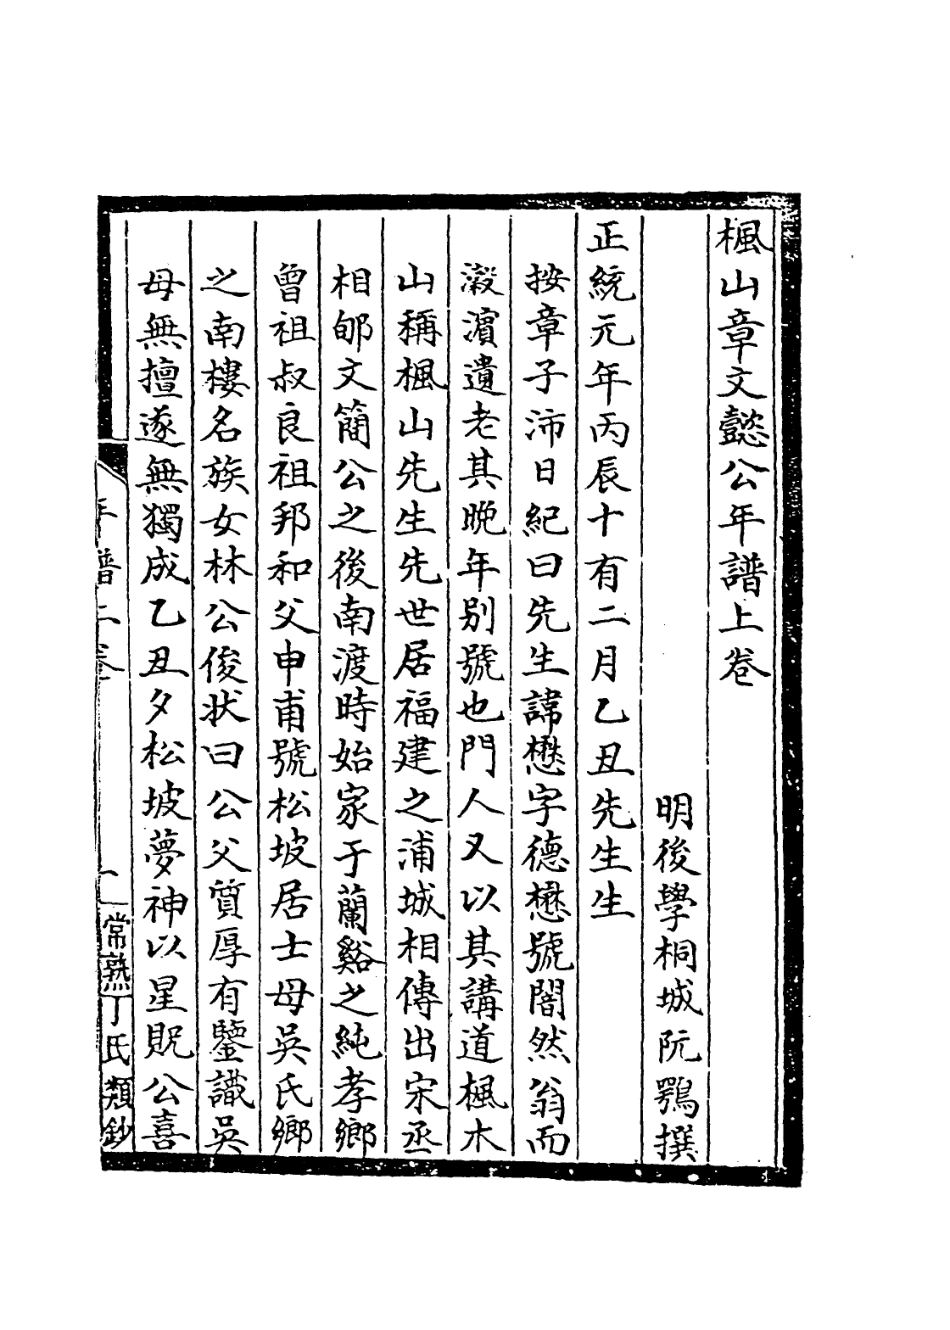 楓山章文懿公年譜上卷
明後學桐城阮鶚撰
正統元年丙辰十有二月乙丑先生生
按章子沛日紀曰先生諱懋字德懋號闇然翁而
瀫濵遺老其晚年别號也門人又以其講道楓木
山稱楓山先生先世居福建之浦城相傳出宋丞
相郇文簡公之後南渡時始家于蘭谿之純孝鄉
曾祖叔良祖邦和父申甫號松坡居士母吳氏鄉
之南樓名族女林公俊状曰公父質厚有鑒識吳
母無擅遂無獨成乙丑夕松坡夢神以星貺公喜
年譜上卷
一
常熟丁氏類鈔